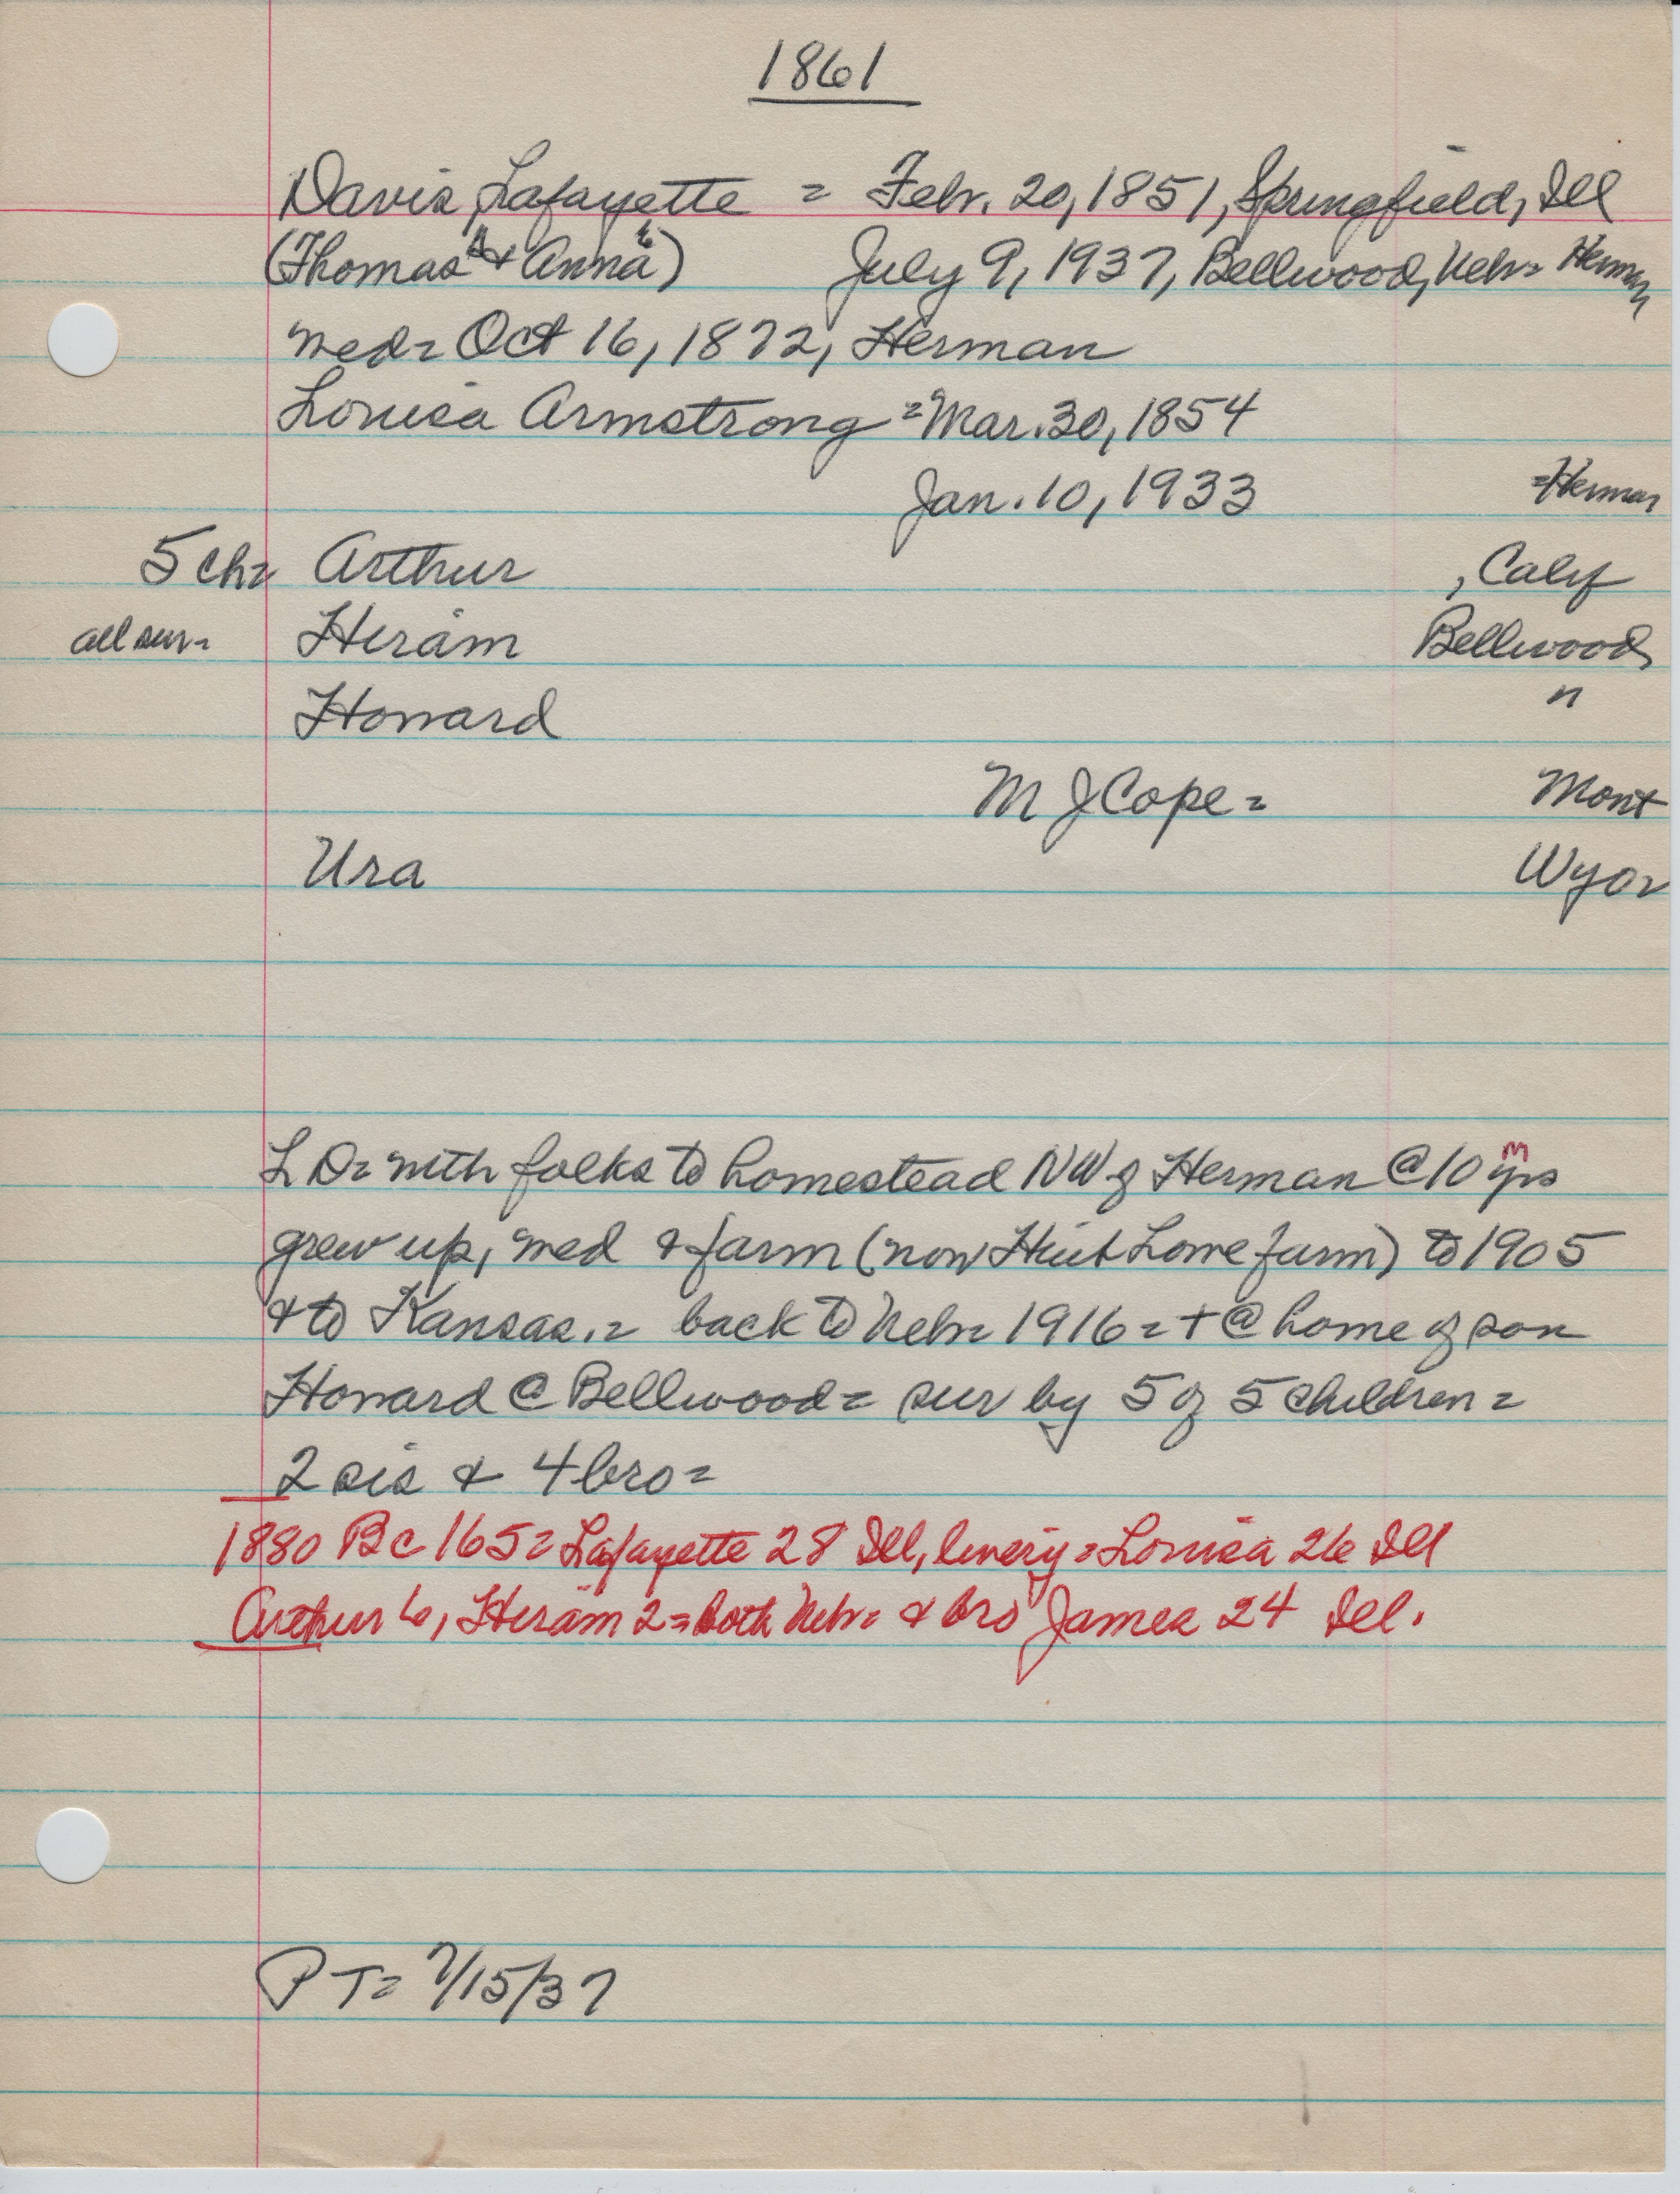 1861
Davis, Lafayette = Febr. 20, 1851, Springfield, Ill
(Thomas & Anna) July 9, 1937, Bellwood, Nebr= Herman
med= Oct 16, 1872, Herman
Louisa Armstrong = Mar. 30, 1854
Jan. 10, 1933 =Herman
5 ch= Arthur , Calif
all sur= Hiram Bellwood
Howard "
M J Cope = Mont
Ura Wyo=
L D= with folks to homestead NW of Herman @ 10 yrs
grew up, med & farm (now Lowe farm) to 1905
& to Kansas.= back to Nebr= 1916 = + @ home of son
Howard @ Bellwood = sur by 5 of 5 children =
2 sis & 4 bro =
1880 Bc 165= Lafayette 28 Ill, livery = Louisa 26 Ill
Arthur 6, Hiram 2 = both Nebr= & bro James 24 Ill.
P T= 7/15/37